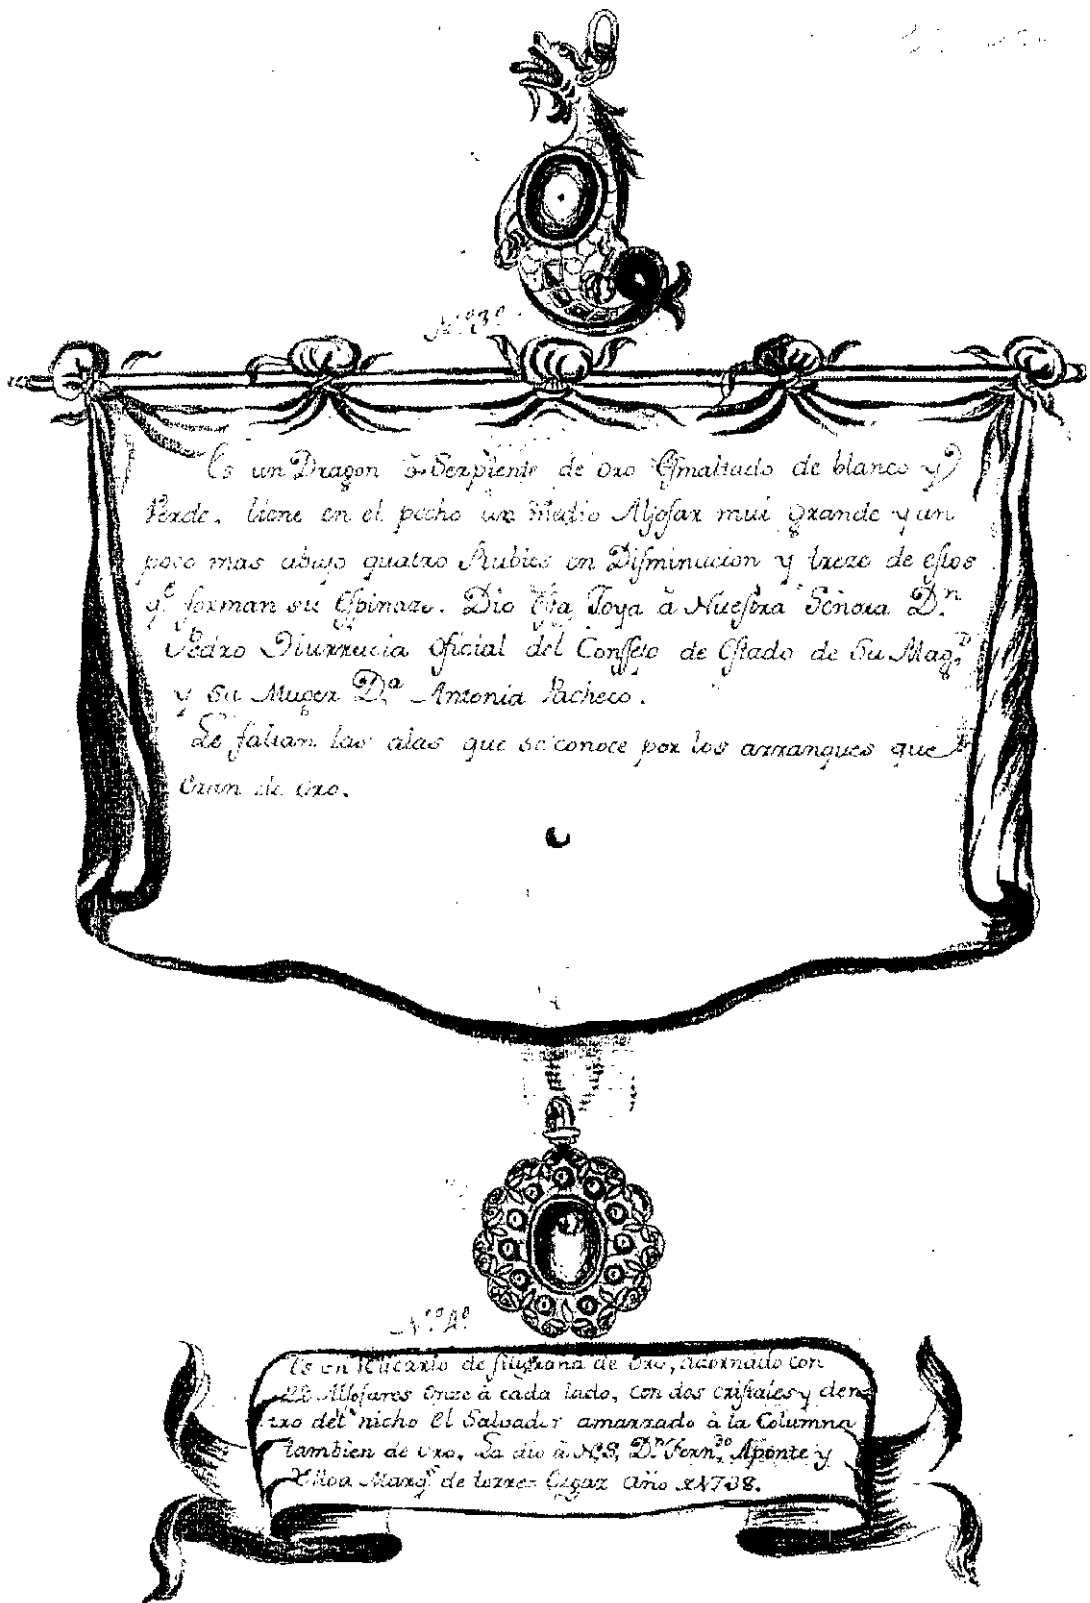 N.º 3º
Es un Dragon, ô Serpiente de oro Esmaltado de blanco y
Verde, tiene en el pecho un medio Aljofar mui grande y un
poco mas abajo quatro Rubies en Disminucion y treze de estos
q.e forman su Espinazo. Dio Esta Joya â Nuestra Señora D.n
Pedro Diurrucia Oficial del Consejo de Estado de Su Mag.d
y Su Muger D.a Antonia Pacheco.
Le faltan las alas que se conoce por los arranques que
eran de oro.
N.º 4º
Es un Relicario de filigrana de Oro, adornado con
22 Aljofares Onze â cada lado, con dos cristales y den
tro del nicho El Salvador amarrado â la Columna
tambien de oro. La dio â N.S. D.n Fern.do Aponte y
Marq.s de torre= Año 1738.